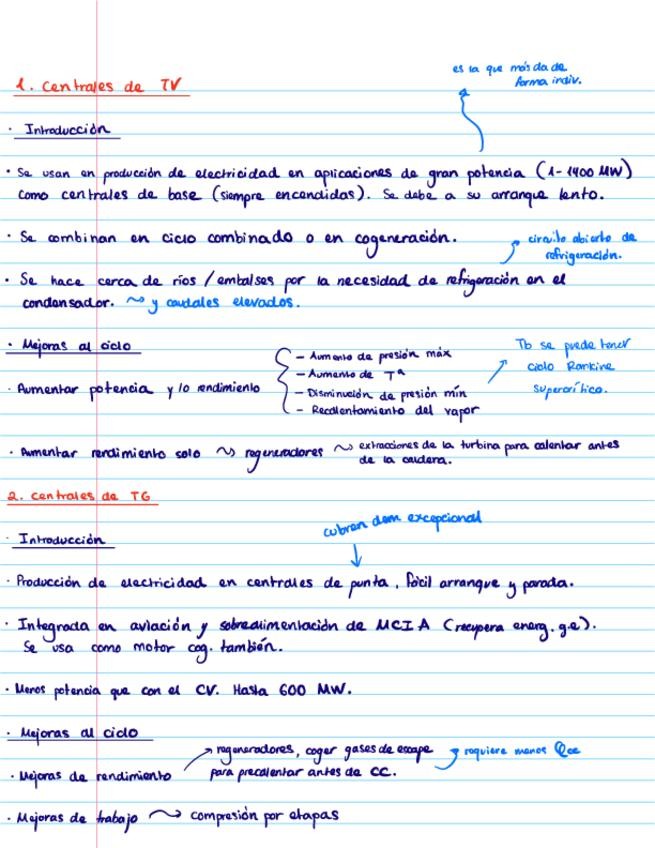 es la que más da de
forma indiv.
1. Centrales de TV
· Introducción
· Se usan en producción de electricidad en aplicaciones de gran potencia (1-1400 MW)
como centrales de base (siempre encendidas). Se debe a su arranque lento.
· Se combinan en ciclo combinado o en cogeneración.
circuito abierto de
refrigeración.
· Se hace cerca de ríos / embalses por la necesidad de refrigeración en el
condensador. ~> y caudales elevados.
· Mejoras al ciclo
Tb se puede tener
ciclo Rankine
supercrítico.
· Aumentar potencia y/o rendimiento
- Aumento de presión máx
- Aumento de Tª
- Disminución de presión mín
- Recalentamiento del vapor
· Aumentar rendimiento solo ~> regeneradores ~> extracciones de la turbina para calentar antes
de la caldera.
2. Centrales de TG
cubren dem excepcional
· Introducción
· Producción de electricidad en centrales de punta, fácil arranque y parada.
· Integrada en aviación y sobrealimentación de MCIA (recupera energ. g.e).
Se usa como motor cog. también.
· Menos potencia que con el CV. Hasta 600 MW.
· Mejoras al ciclo
· Mejoras de rendimiento → regeneradores, coger gases de escape → requiere menos Qcc
para precalentar antes de CC.
· Mejoras de trabajo ~> compresión por etapas